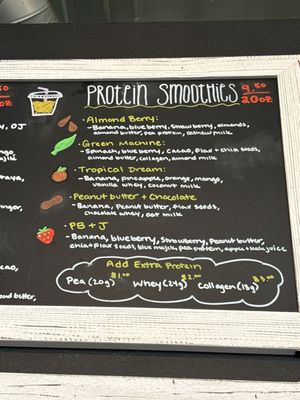 PROTEIN SMOOTHIES 9.50
20oz
• Almond Berry:
- Banana, blueberry, strawberry, almonds,
almond butter, pea protein, cashew milk
• Green Machine:
- Spinach, blueberry, cacao, flax + chia seeds,
almond butter, collagen, almond milk
• Tropical Dream:
- Banana, pineapple, orange, mango,
vanilla whey, coconut milk
• Peanut butter + Chocolate
- Banana, Peanut butter, flax seeds,
chocolate whey, oat milk
• PB + J
- Banana, blueberry, strawberry, Peanut butter,
chia + flax seeds, blue majik, pea protein, apple juice
Add Extra Protein
$1.00 $2.00 $3.00
Pea (20g) Whey (24g) Collagen (18g)
50
0oz
, OJ
nger,
cao,
ond butter,